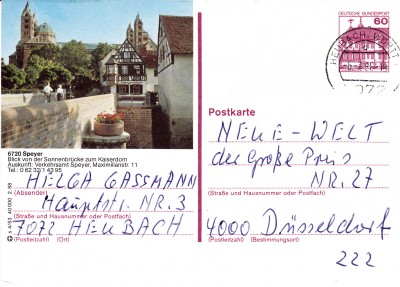 DEUTSCHE BUNDESPOST
60
HEUBACH, WÜRTT
7072
6720 Speyer
Blick von der Sonnenbrücke zum Kaiserdom
Auskunft: Verkehrsamt Speyer, Maximilianstr. 11
Tel.: 0 62 32/1 43 95
HELGA GASSMANN
(Absender)
Hauptstr. NR. 3
(Straße und Hausnummer oder Postfach)
7072 HEUBACH
(Postleitzahl) (Ort)
Postkarte
NEUE-WELT
der Große Preis
NR. 27
(Straße und Hausnummer oder Postfach)
4000 Düsseldorf
(Postleitzahl) (Bestimmungsort)
222